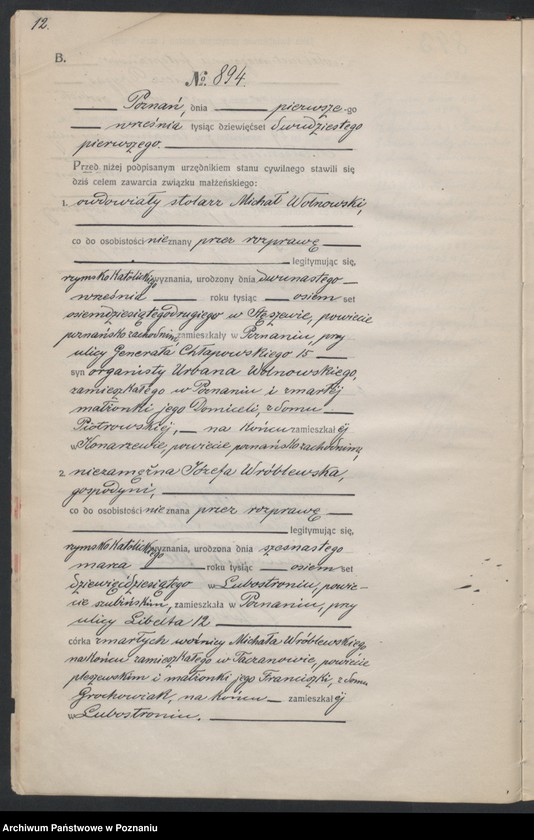 12.
B.
№ 894.
Poznań, dnia pierwsze-go
września tysiąc dziewięćset dwudziestego
pierwszego.
Przed niżej podpisanym urzędnikiem stanu cywilnego stawili się
dziś celem zawarcia związku małżeńskiego:
1. owdowiały stolarz Michał Wolnowski,
co do osobistości nieznany przez rozprawę
legitymując się,
rzymsko katolickiego wyznania, urodzony dnia dwunastego
września roku tysiąc osiem set
osiemdziesiątegodrugiego w Stęszewie, powiecie
poznańsko zachodnim, zamieszkały w Poznaniu, przy
ulicy Generała Chłapowskiego 15
syn organisty Urbana Wolnowskiego,
zamieszkałego w Poznaniu i zmarłej
małżonki jego Domiceli, z domu
Piotrowskiej, na końcu zamieszkałej
w Konarzewie, powiecie poznańsko zachodnim,
2. niezamężna Józefa Wróblewska,
gospodyni,
co do osobistości nieznana przez rozprawę
legitymując się,
rzymsko katolickiego wyznania, urodzona dnia szesnastego
marca roku tysiąc osiem set
dziewięćdziesiątego w Lubostroniu, powie-
cie szubińskim, zamieszkała w Poznaniu, przy
ulicy Libelta 12
córka zmarłych woźnicy Michała Wróblewskiego
na końcu zamieszkałego w Taczanowie, powiecie
pleszewskim i małżonki jego Franciszki, z domu
Grochowiak, na końcu zamieszkałej
w Lubostroniu.
Archiwum Państwowe w Poznaniu